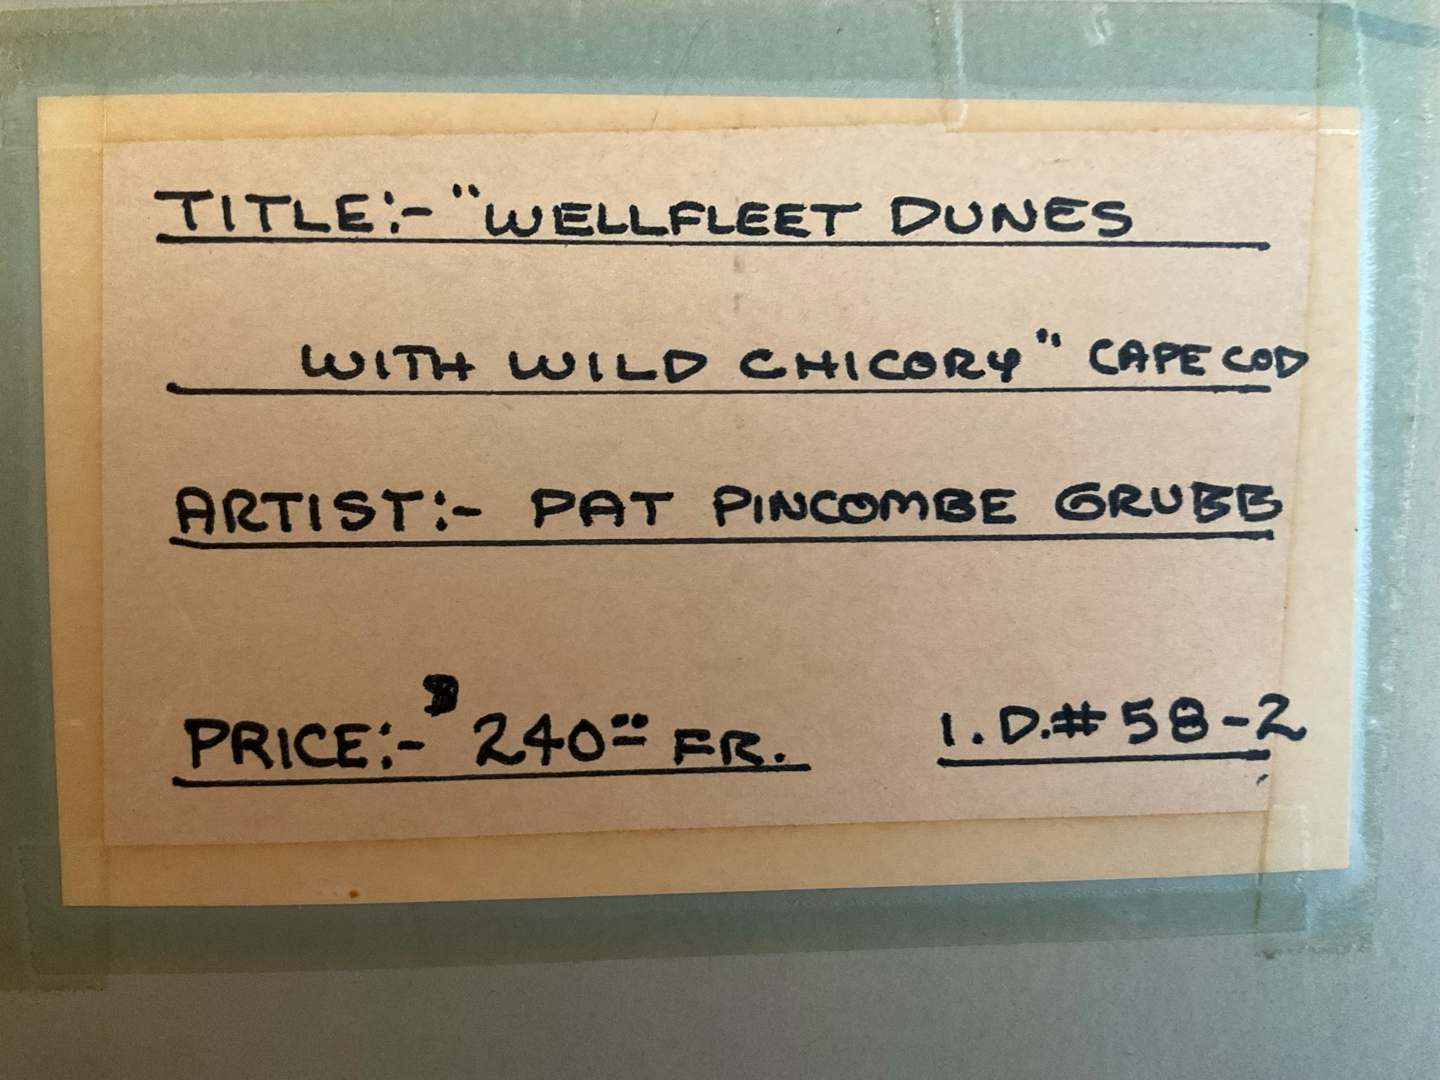 TITLE:- "WELLFLEET DUNES
WITH WILD CHICORY" CAPE COD
ARTIST:- PAT PINCOMBE GRUBB
PRICE:- $240.00 FR. I.D.# 58-2